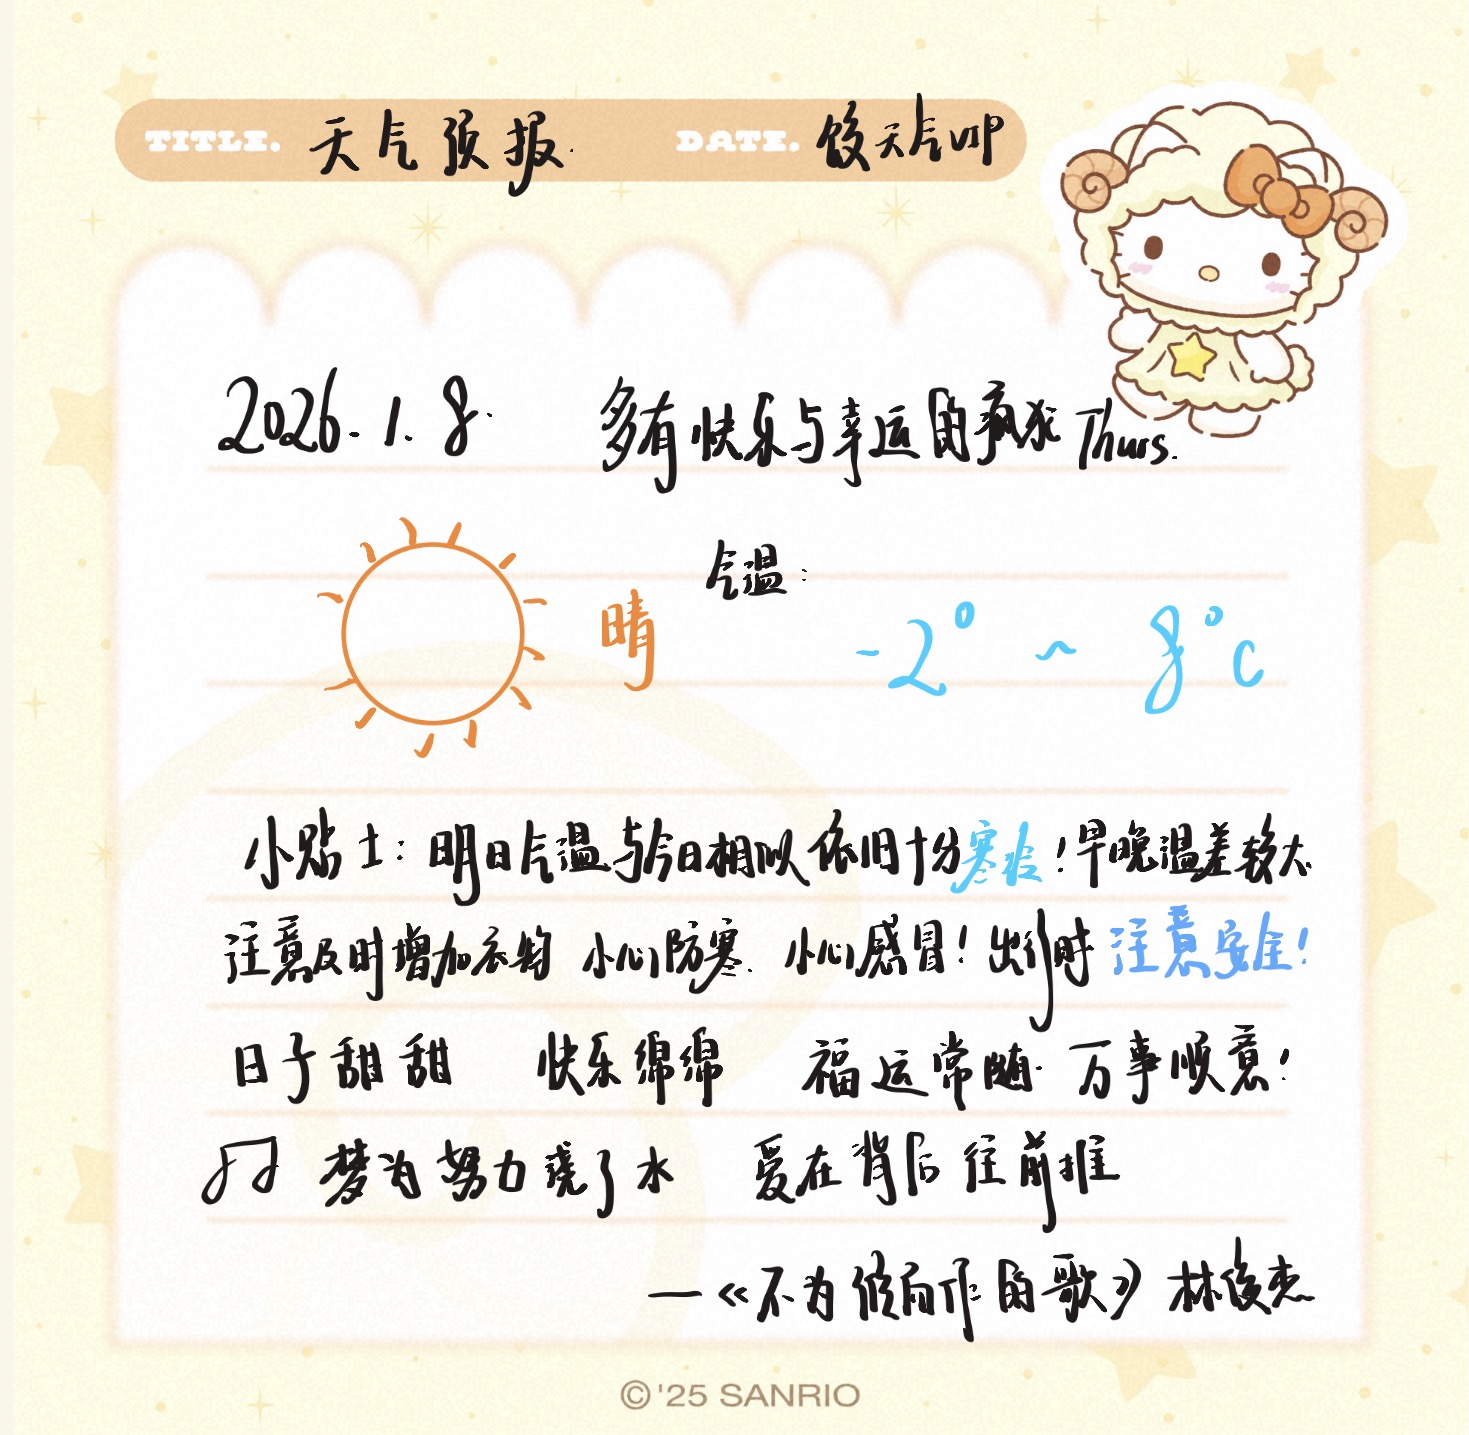 TITLE. 天气预报. DATE. 饺天气VIP
2026.1.8. 多有快乐与幸运的疯狂Thurs.
气温:
晴 -2° ~ 8°C
小贴士: 明日气温与今日相似 依旧十分寒冷!早晚温差较大.
注意及时增加衣物 小心防寒. 小心感冒! 出行时注意安全!
日子甜甜 快乐绵绵 福运常随. 万事顺意!
梦为努力浇了水 爱在背后往前推
—《不为谁而作的歌》林俊杰
© '25 SANRIO